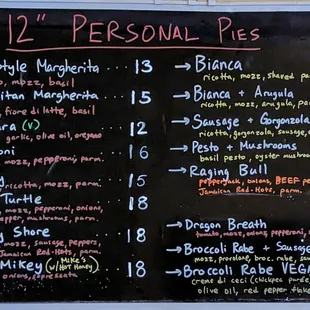 12" PERSONAL PIES
tyle Margherita 13
, mozz, basil
itan Margherita 15
, fiore di latte, basil
ara (V) 12
garlic, olive oil, oregano
oni 16
mozz, pepperoni, parm.
15
ricotta, mozz, parm
Turtle 18
, mozz, pepperoni, onions,
epper, mushrooms, parm.
y Shore 18
mozz, sausage, peppers,
Jamaican Red-Hots, parm.
Mikey (w/ Mike's Hot Honey) 18
onions, sopressata
→ Bianca
ricotta, mozz, shaved pa
→ Bianca + Arugula
ricotta, mozz, arugula, pa
→ Sausage + Gorgonzola
ricotta, gorgonzola, sausage,
→ Pesto + Mushrooms
basil pesto, oyster mushroom
→ Raging Bull
pepperjack, onions, BEEF pe
Jamaican Red-Hots, parm.
→ Dragon Breath
tomato, mozz, onions, pepperoni, s
→ Broccoli Rabe + Sausage
mozz, provolone, broc. rabe, sausag
→ Broccoli Rabe VEGA
creme di ceci (chickpea purée
olive oil, red pepper flake